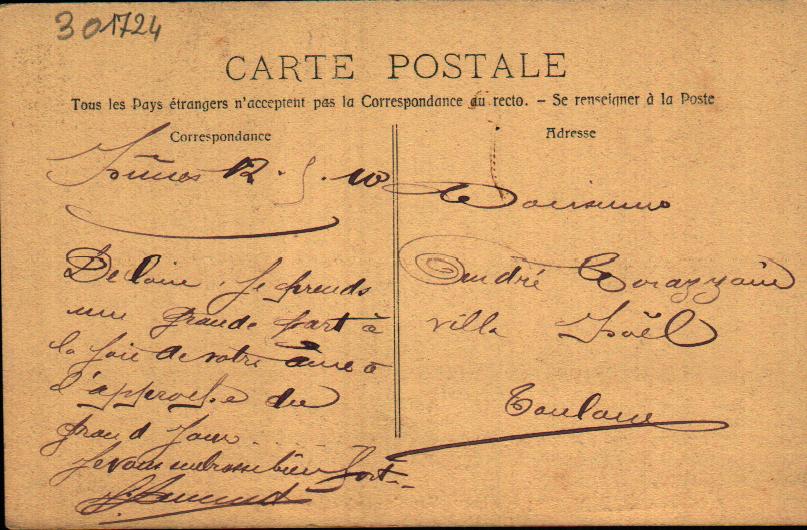 301724
CARTE POSTALE
Tous les Pays étrangers n'acceptent pas la Correspondance au recto. — Se renseigner à la Poste
Correspondance
12 . 5 . 10
De loin, je prends
une grande part à
la joie de votre âme à
l'approche du
grand jour ......
Je vous embrasse bien fort...
Adresse
Monsieur
André
villa Noël
Toulouse